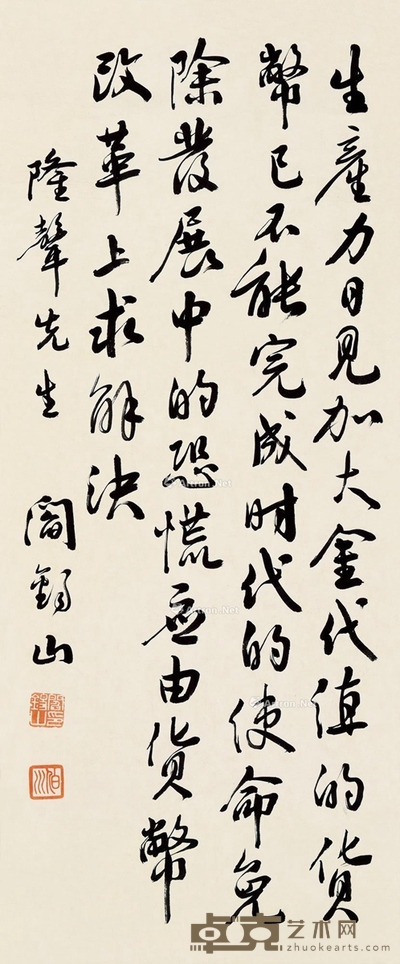 生產力日見加大金代值的貨
幣已不能完成时代的使命免
除發展中的恐慌应由貨幣
改革上求解決
隆聲先生 閻錫山
閻錫山印
伯川
Artron.Net
卓克艺术网
zhuokearts.com